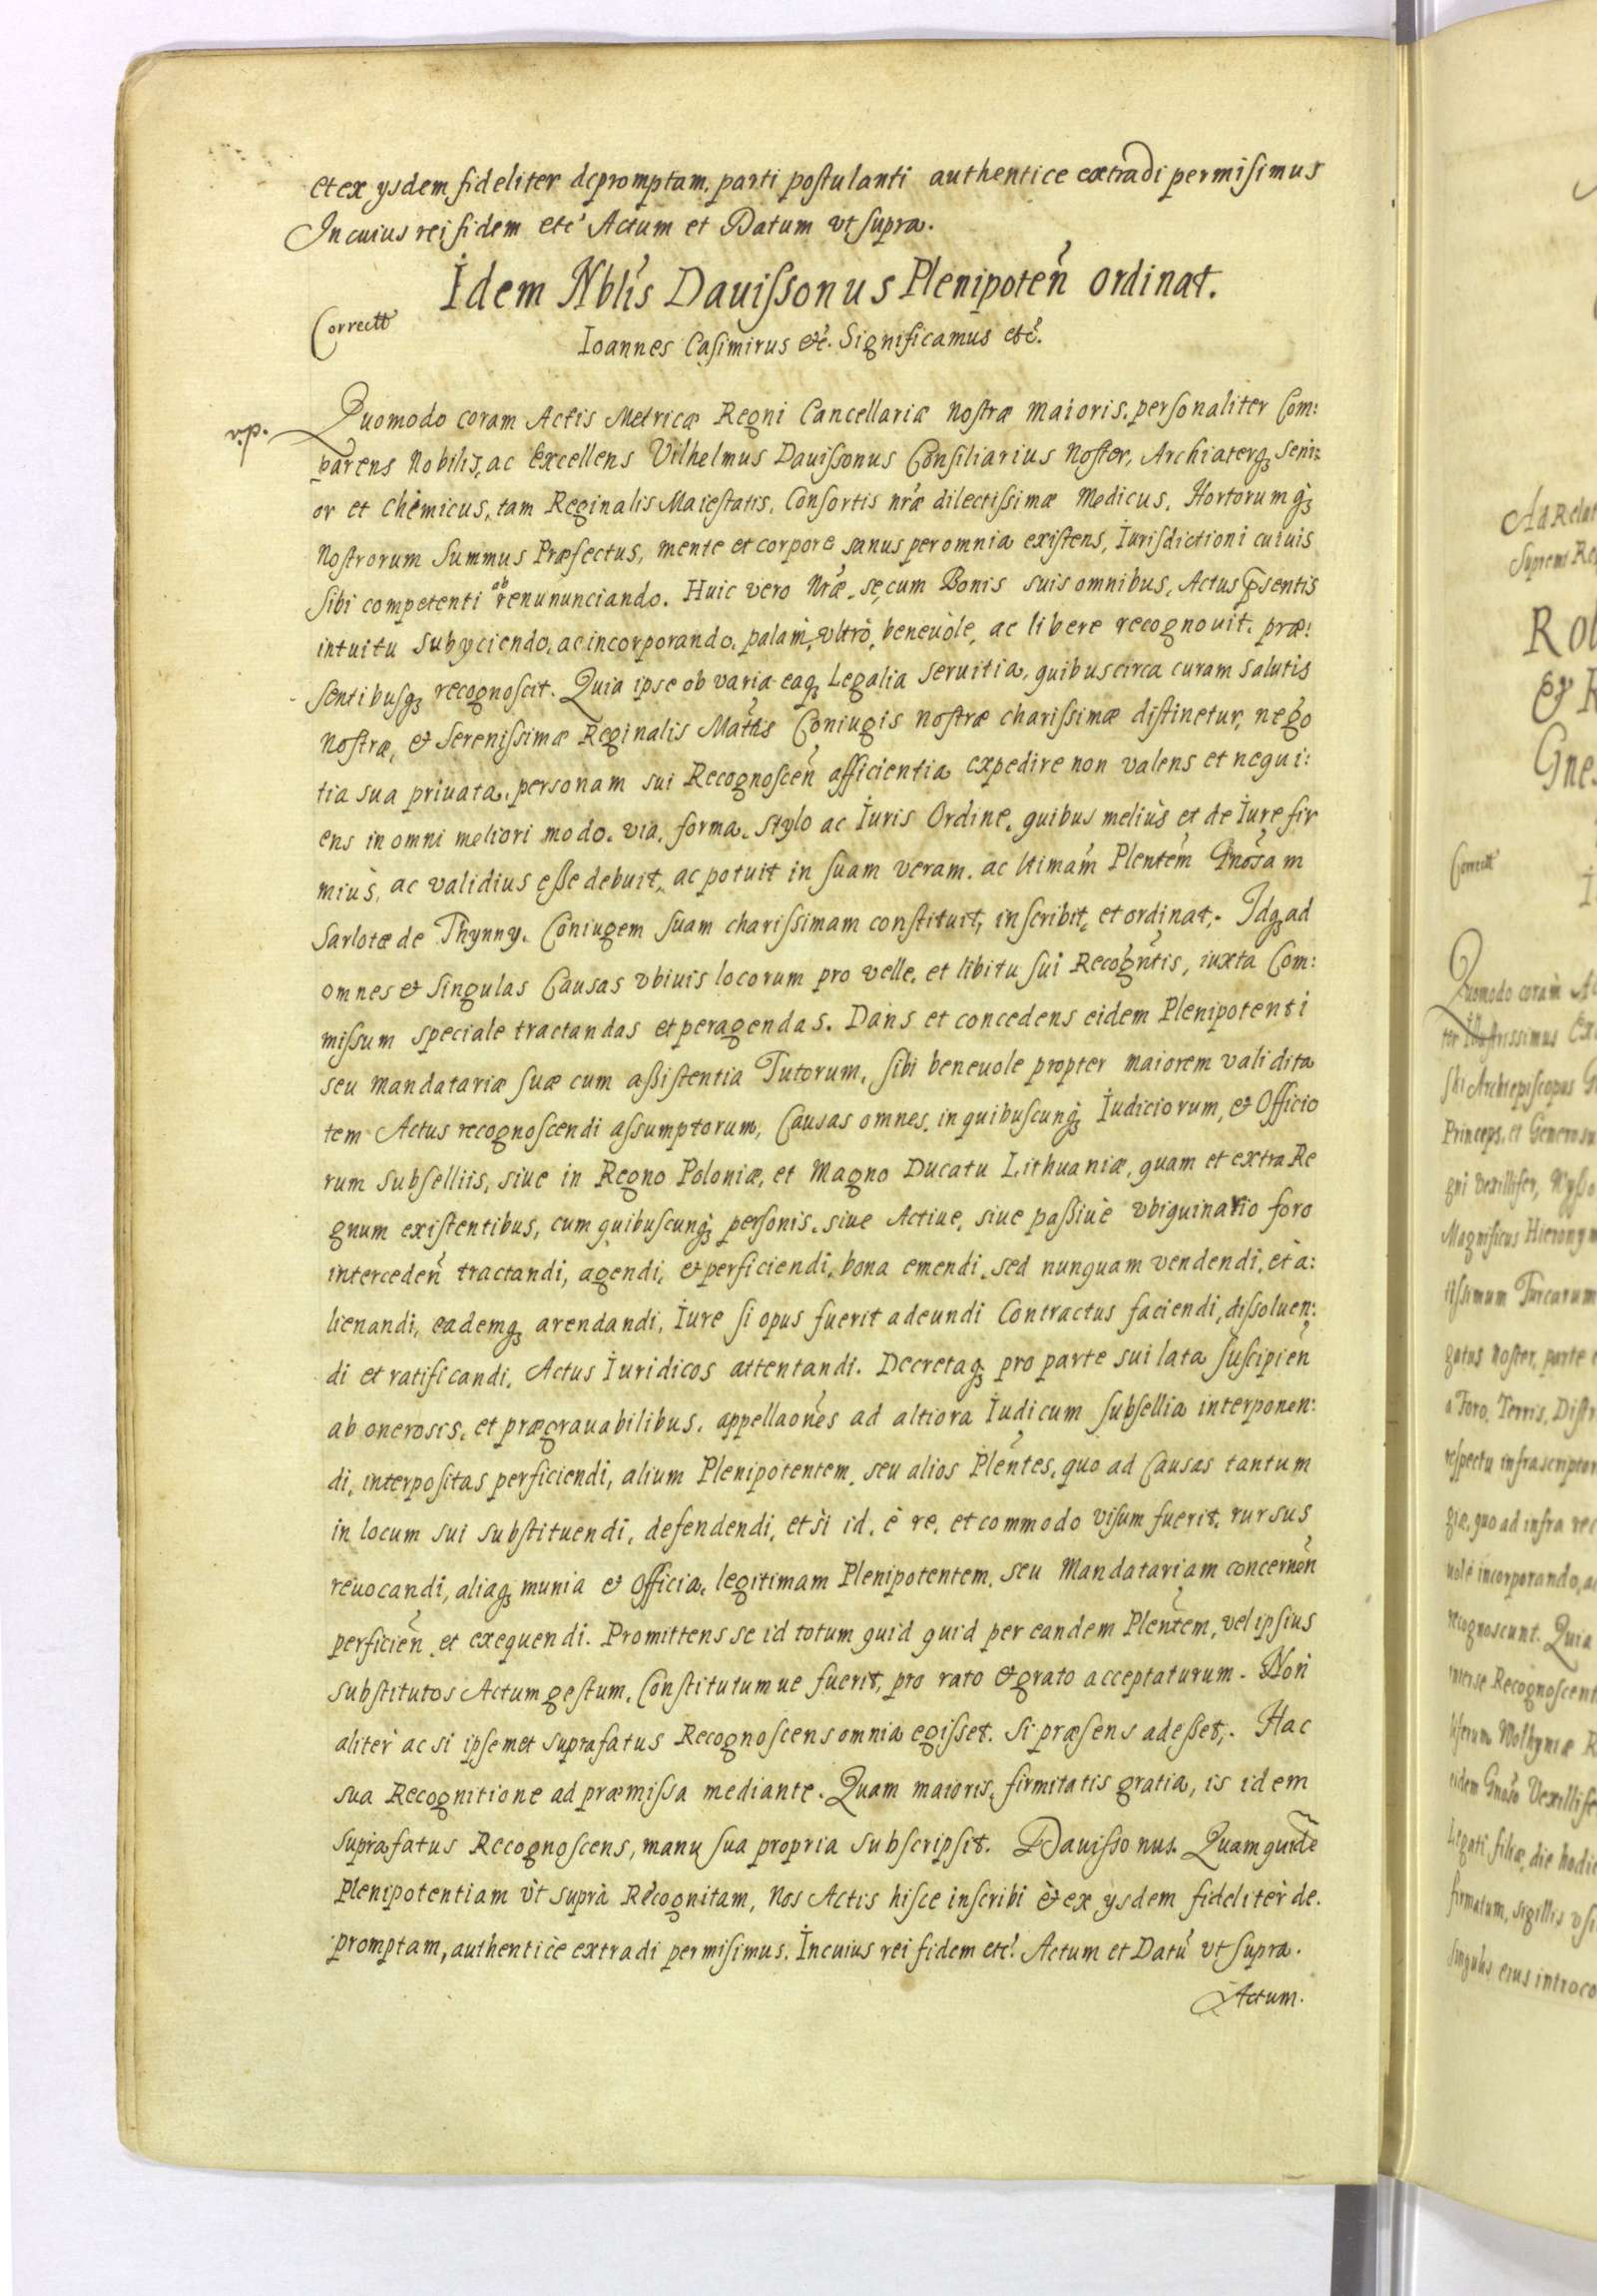 et ex ysdem fideliter depromptam. parti postulanti authentice extradi permisimus
In cuius rei fidem etc Actum et Datum vt supra.
Idem Nblis Dauissonus Plenipoten ordinat.
Correctt
Ioannes Casimirus etc. Significamus etc.
Quomodo coram Actis Metricæ Regni Cancellariæ nostræ maioris. personaliter Com:
parens Nobilis, ac Excellens Vilhelmus Dauissonus Consiliarius noster, Archiaterq3 seni:
or et chemicus, tam Reginalis Maiestatis, Consortis nræ dilectissimæ Medicus, Hortorumq3
nostrorum Summus Præfectus, mente et corpore sanus per omnia existens, Iurisdictioni cuiuis
sibi competenti ob renununciando. Huic vero Nræ se, cum Bonis suis omnibus, Actus psentis
intuitu subyciendo, ac incorporando, palam, vltrò, beneuole, ac libere recognouit. præ:
sentibusq3 recognoscit. Quia ipse ob varia eaq3 Legalia seruitia, quibus circa curam salutis
nostræ, et Serenissimæ Reginalis Mattis Coniugis nostræ charissimæ distinetur, nego
tia sua priuata, personam sui Recognoscen afficientia expedire non valens et nequi:
ens in omni meliori modo. via, forma, stylo ac Iuris Ordine, quibus meliùs et de Iure fir
miùs, ac validius esse debuit, ac potuit in suam veram. ac ltimam Plentem Gnosam
Sarlotæ de Thynny. Coniugem suam charissimam constituit, inscribit, et ordinat,. Idq3 ad
omnes et singulas Causas vbiuis locorum pro velle, et libitu sui Recogntis, iuxta Com:
missum speciale tractandas et peragendas. Dans et concedens eidem Plenipotenti
seu mandatariæ suæ cum assistentia Tutorum, sibi beneuole propter maiorem validita
tem Actus recognoscendi assumptorum, Causas omnes, in quibuscunq3 Iudiciorum, et Officio
rum subselliis, siue in Regno Poloniæ, et Magno Ducatu Lithuaniæ, quam et extra Re
gnum existentibus, cum quibuscunq3 personis, siue Actiue, siue passiuè vbiquinario foro
interceden tractandi, agendi, et perficiendi, bona emendi, sed nunquam vendendi, et a:
lienandi, eademq3 arendandi, Iure si opus fuerit adeundi Contractus faciendi, dissoluen:
di et ratificandi, Actus Iuridicos attentandi. Decretaq3 pro parte sui lata suscipien
ab onerosis, et prægrauabilibus, appellaones ad altiora Iudicum subsellia interponen:
di, interpositas perficiendi, alium Plenipotentem, seu alios Plentes, quo ad Causas tantum
in locum sui substituendi, defendendi, et si id, è re, et commodo visum fuerit, rursus
reuocandi, aliaq3 munia et Officia, legitimam Plenipotentem, seu Mandatariam concernen
perficien, et exequendi. Promittens se id totum quid quid per eandem Plentem, vel ipsius
substitutos Actum gestum, Constitutumue fuerit, pro rato et grato acceptaturum. Non
aliter ac si ipsemet suprafatus Recognoscens omnia egisset. Si præsens adesset,. Hac
sua Recognitione ad præmissa mediante. Quam maioris, firmitatis gratia, is idem
suprafatus Recognoscens, manu sua propria subscripsit. Dauissonus. Quam quide
Plenipotentiam vt suprà Recognitam, Nos Actis hisce inscribi et ex ysdem fideliter de.
promptam, authentice extradi permisimus. In cuius rei fidem etc. Actum et Datu vt supra.
Actum.
Ad Relat
Supremi Re
Rol
Gnes
Correctt
Quomodo coram Ac
Archiepiscopus G
Princeps, et Generosu
Magnificus Hieronym
tissimum Turcarum
gatus noster, parte
a Foro, Terris, Distr
respectu infrascriptor
giæ, quo ad infra rec
uole incorporando, a
recognoscunt. Quia
inter se Recognoscent
eidem Gnoso Vexillife
Legati filiæ, die hodie
firmatum, sigillis
singulas eius introco